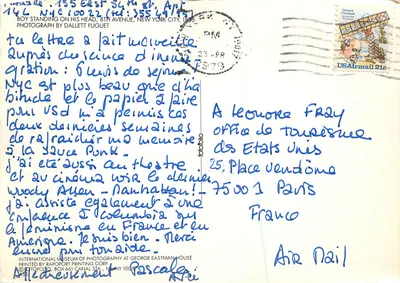 155 East 54th st Apt
14L NYC 10022
BOY STANDING ON HIS HEAD, 8TH AVENUE, NEW YORK CITY,
PHOTOGRAPH BY DALLETT FUGUET
tu lettre a fait merveille
auprès du service d'immi
gration : 6 mois de séjour
NYC est plus beau que d'ha
bitude et le papier à faire
pour VSD m'a permis ces
deux dernières semaines
de rafraichir ma mémoire
à la sauce Punk.
j'ai été aussi au theatre
et au cinéma voir le dernier
Woody Allen - Manhattan! -
j'ai assisté également à une
conférence à Columbia sur
le féminisme en France et en
Amérique. Je suis bien. Merci
pour ton aide.
INTERNATIONAL MUSEUM OF PHOTOGRAPHY AT GEORGE EASTMAN HOUSE
PRINTED BY RAPOPORT PRINTING CORP.
BOX 661 CANAL STA. NY 10013
Affectueusement Pascale
PM
23 APR
1979
USAirmail 21c
A Leonore Fray
Office de Tourisme
des Etats Unis
25, Place Vendôme
75001 Paris
France
Air Mail